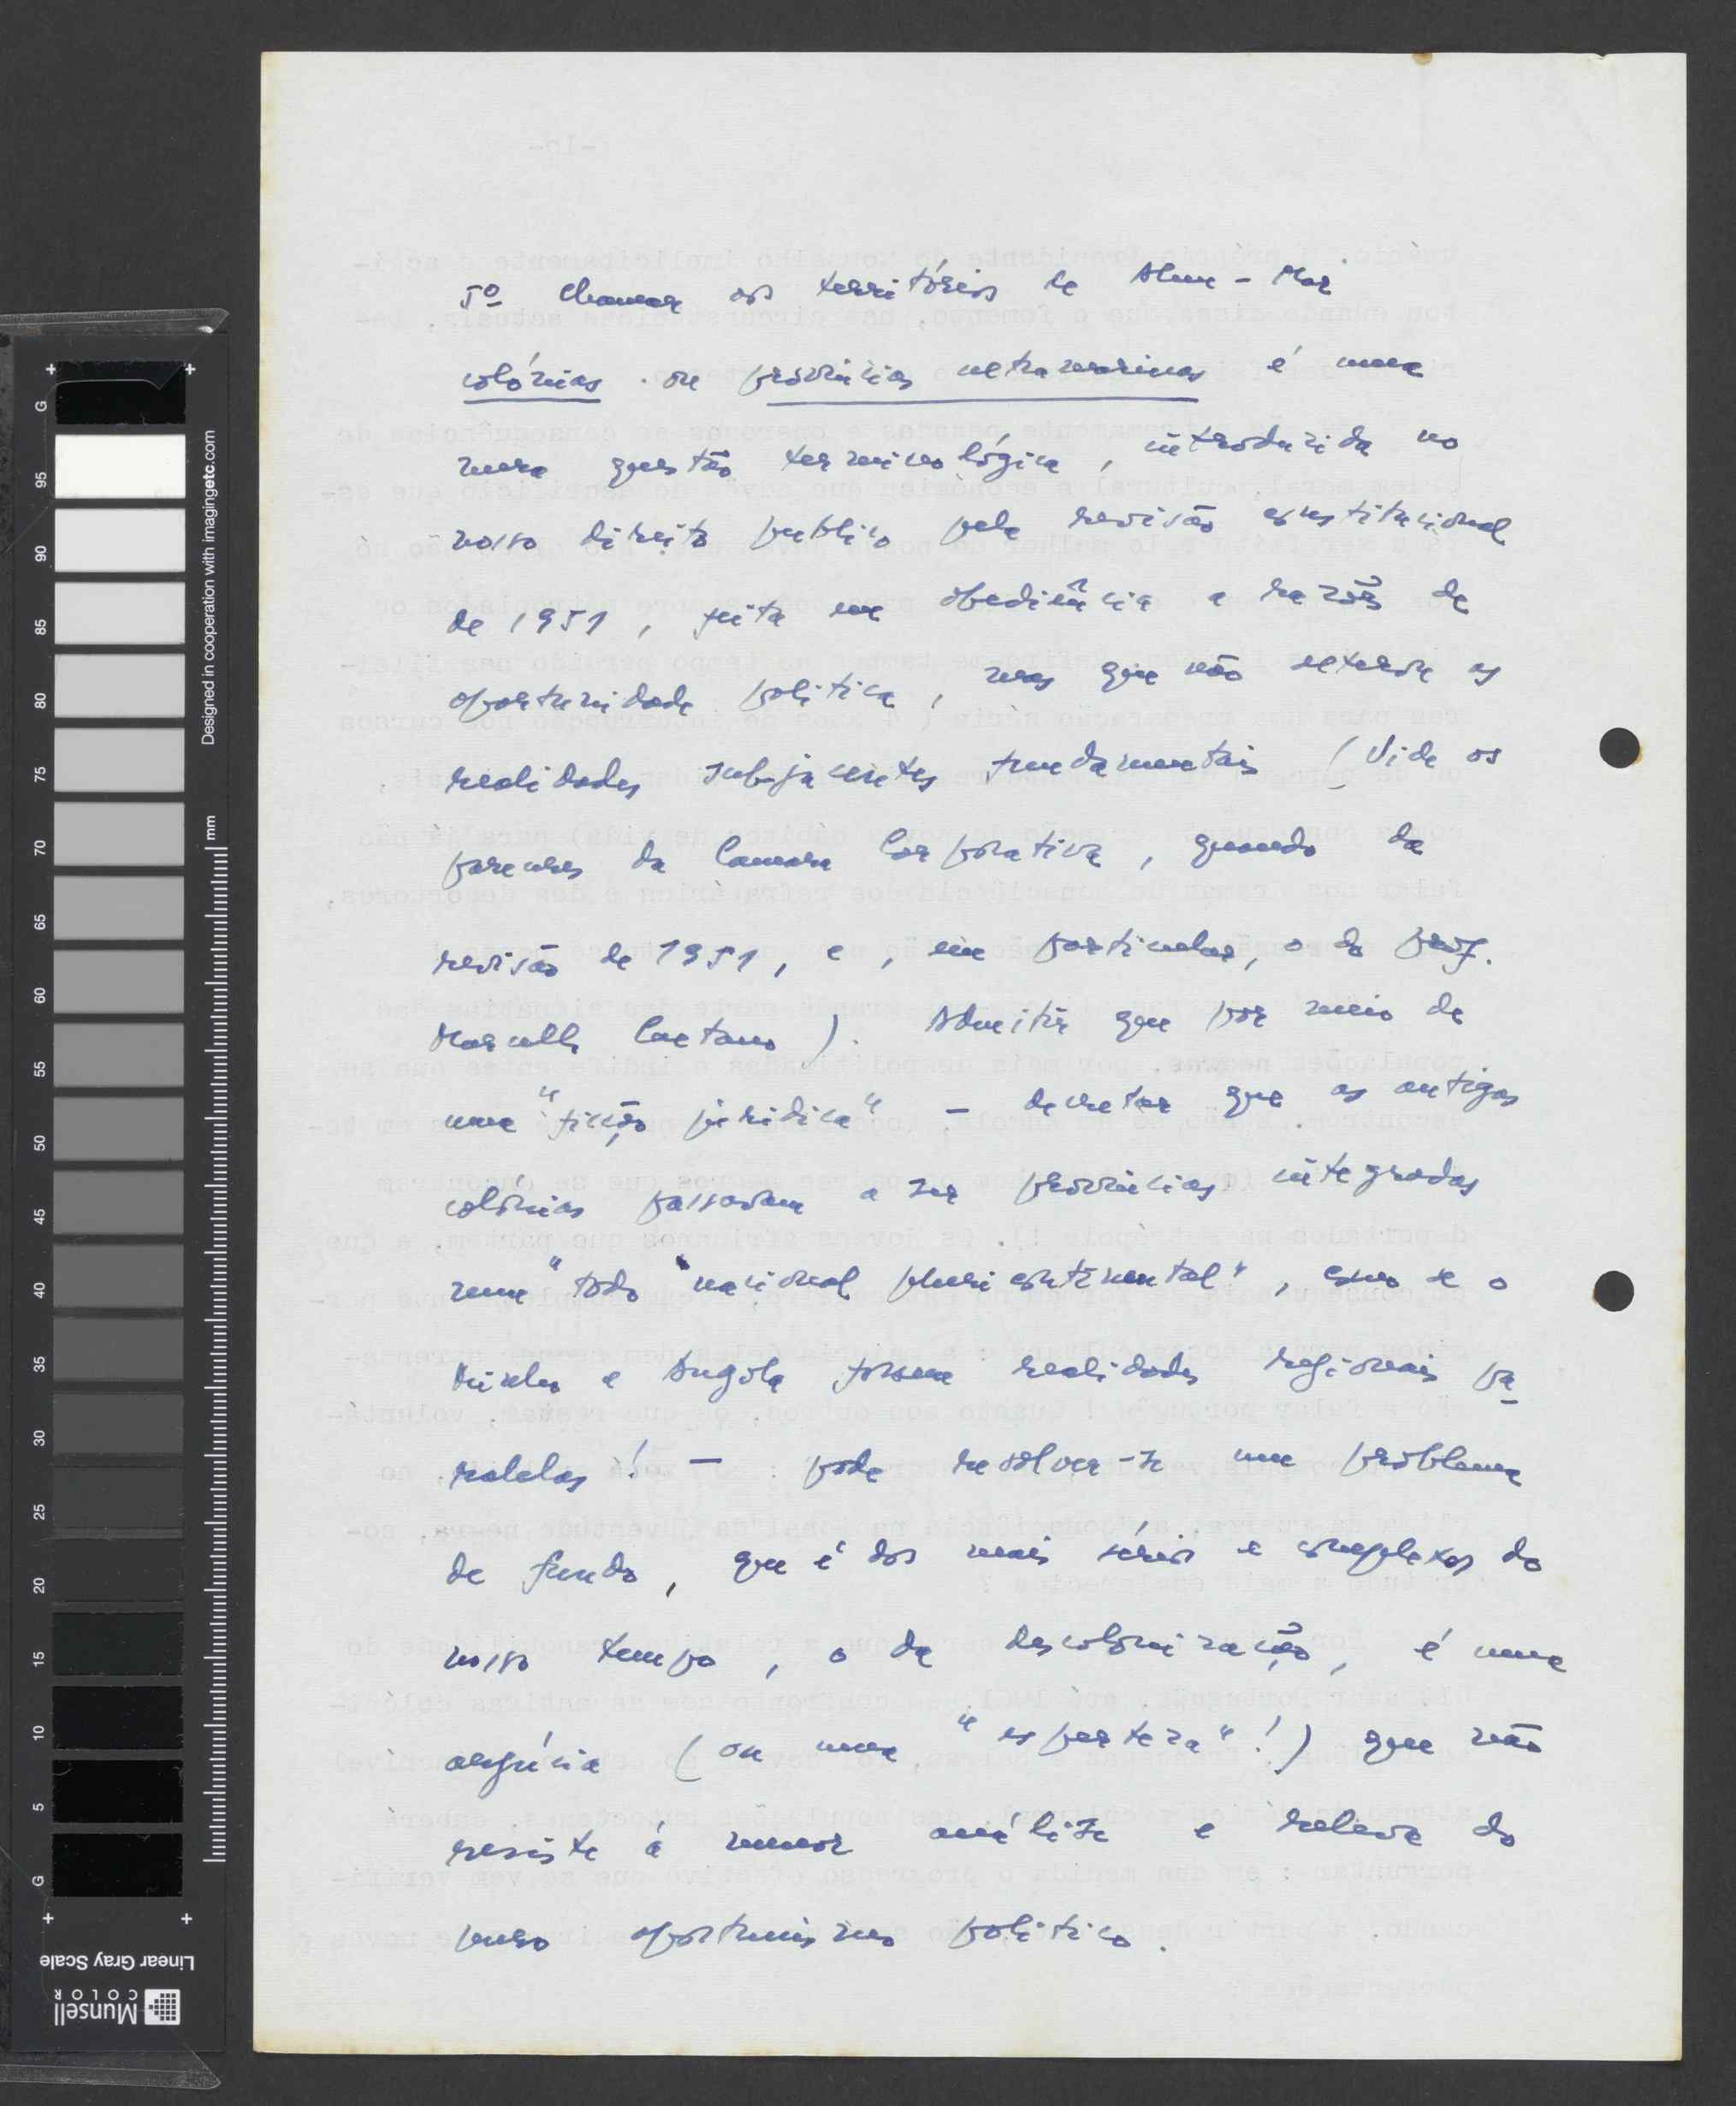 5º Chamar aos territórios de Além-Mar
colónias ou províncias ultramarinas é uma
mera questão terminológica, introduzida no
nosso direito publico pela revisão constitucional
de 1951, feita em obediência a razões de
oportunidade politica, mas que não altera as
realidades subjacentes fundamentais (Vide os
pareceres da Camara Corporativa, quando da
revisão de 1951, e, em particular, o do prof.
Marcello Caetano). Admitir que por meio de
uma "ficção juridica" - decretar que as antigas
colónias passavam a ser províncias integradas
num "todo "nacional pluricontinental", como se o
Minho e Angola fossem realidades regionais pa-
ralelas! - pode resolver-se um problema
de fundo, que é dos mais sérios e complexos do
nosso tempo, o da descolonização, é uma
argúcia (ou uma "esperteza"!) que não
resiste à menor análise e releva do
puro oportunismo politico.
G
95
90
85
80
75
70
65
60
55
50
45
40
35
30
25
20
15
10
5
G
mm
mm
Designed in cooperation with imagingetc.com
Linear Gray Scale
Munsell
COLOR